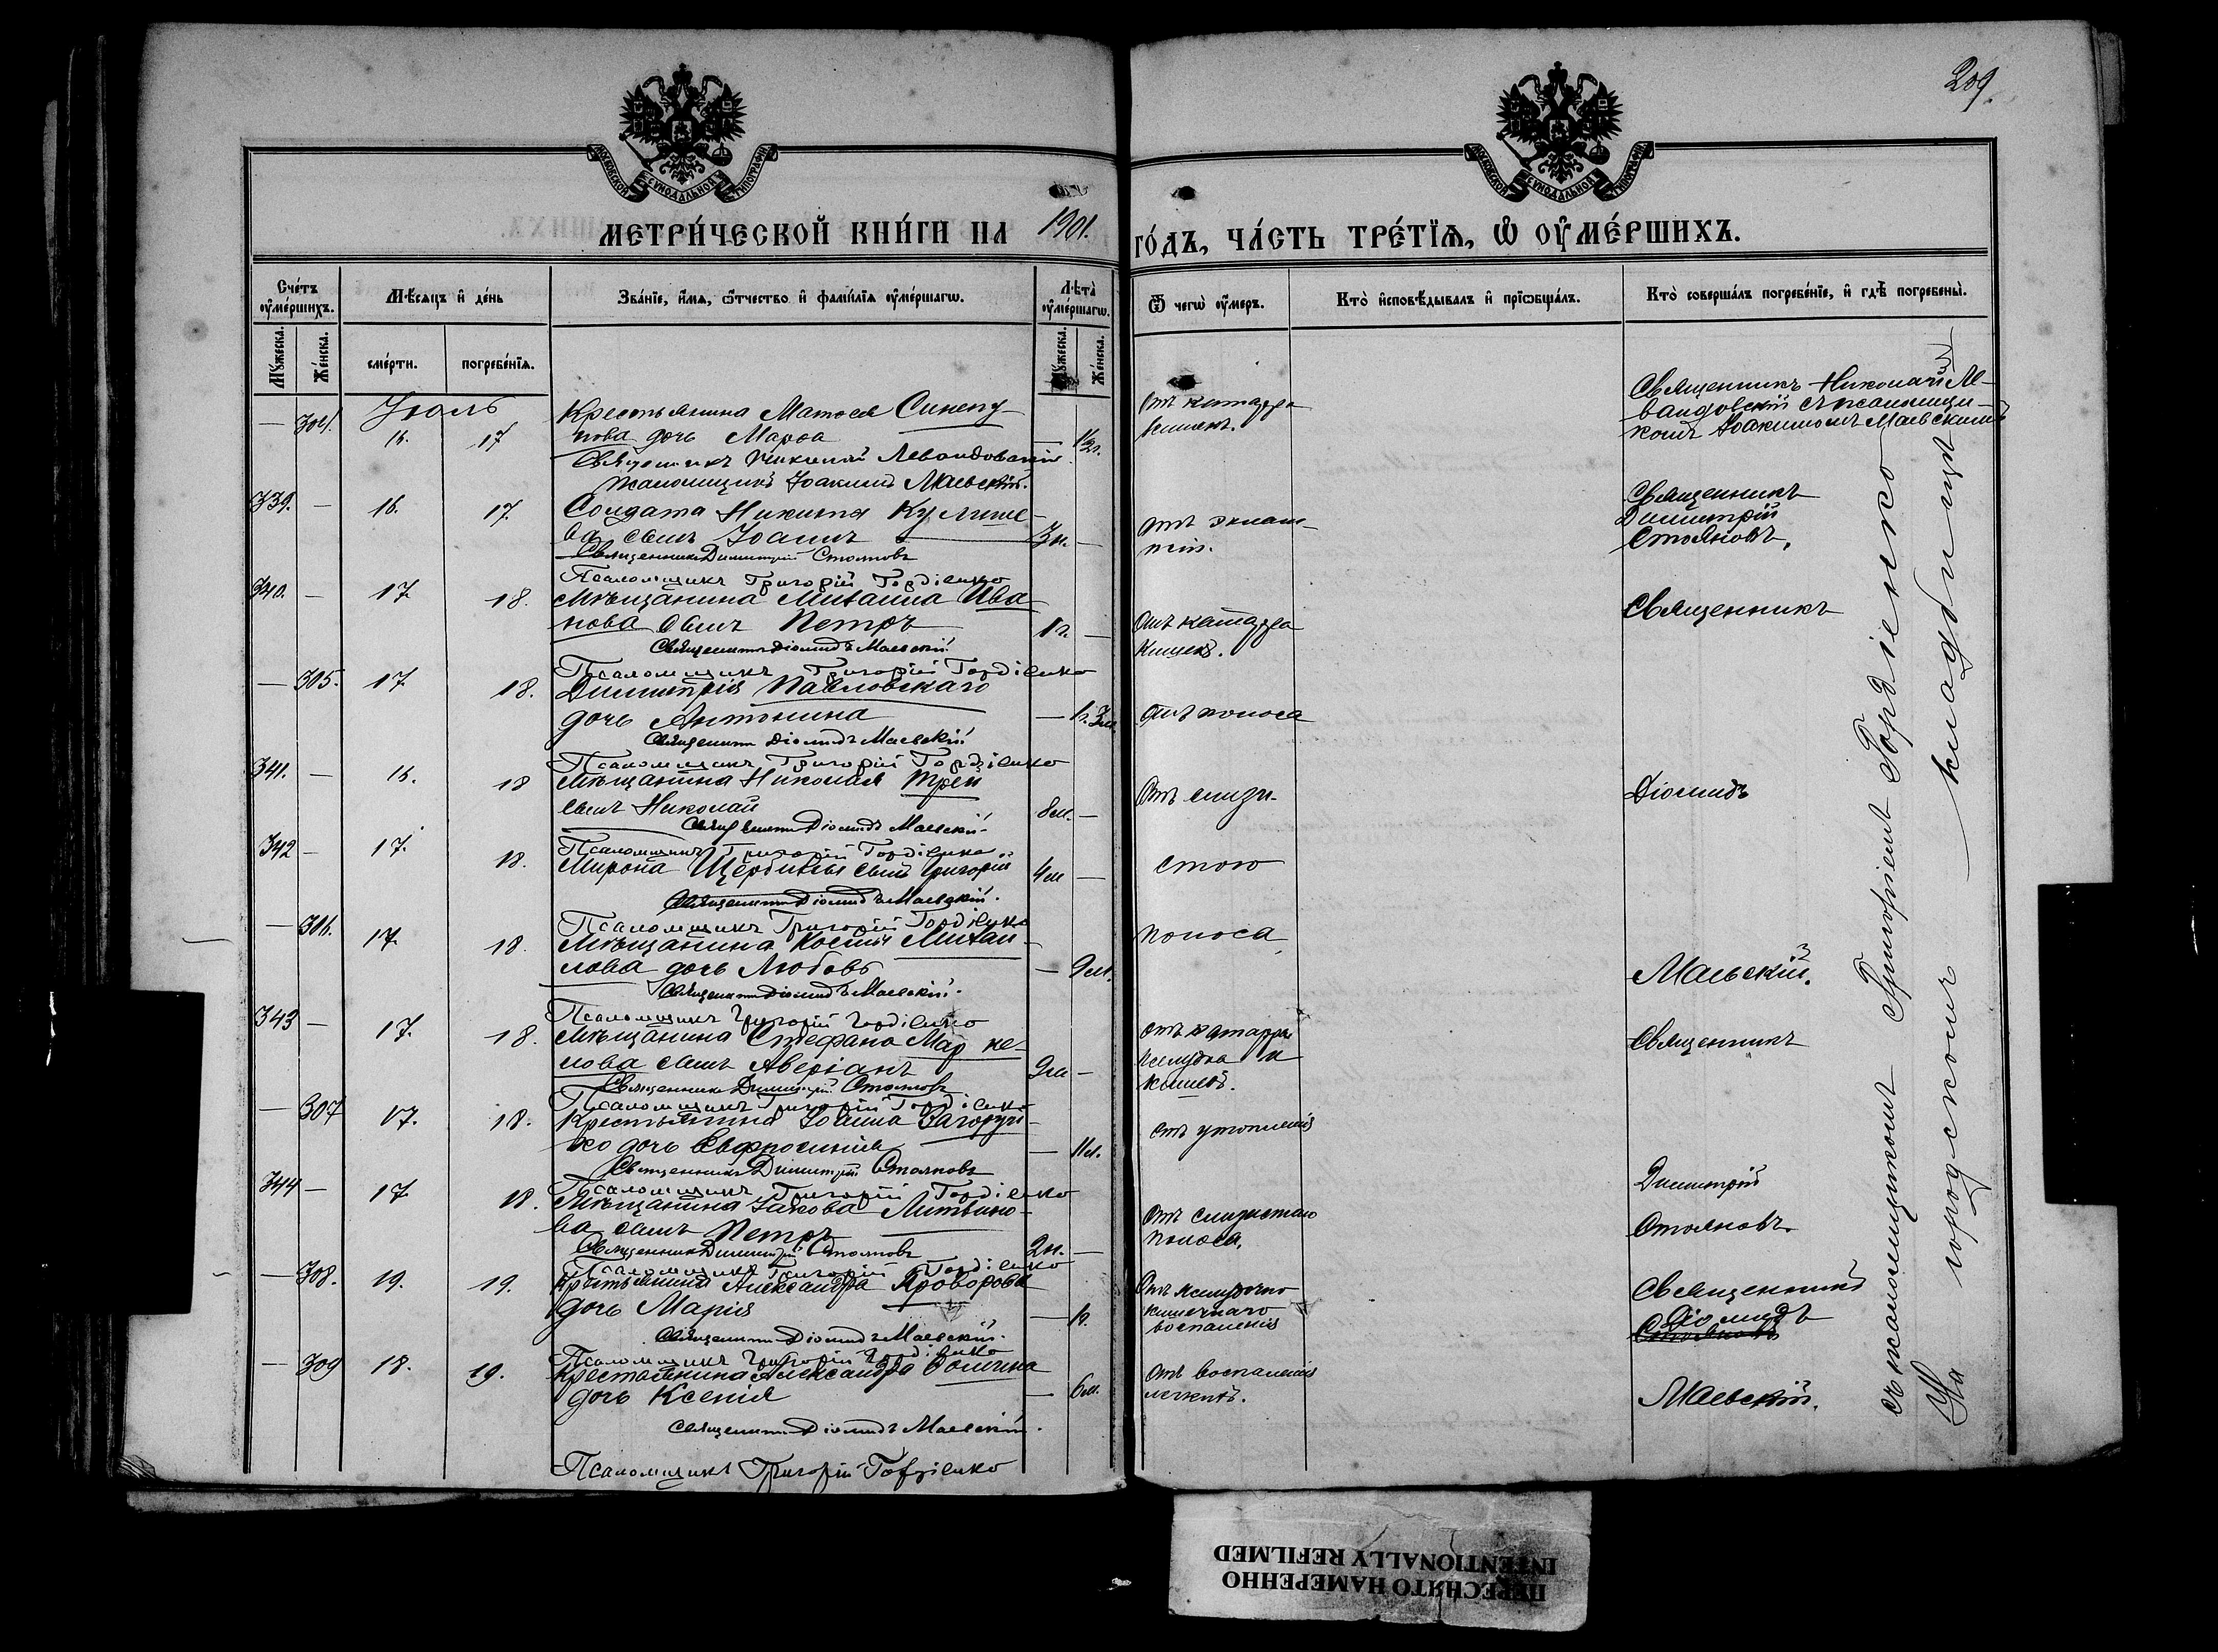 209.
МОСКОВСКОЙ СѴНОДАЛЬНОЙ ТИПОГРАФІИ
МОСКОВСКОЙ СѴНОДАЛЬНОЙ ТИПОГРАФІИ
МЕТРИ́ЧЕСКОЙ КНИ́ГИ НА 1901.
ГО́ДЪ, ЧА́СТЬ ТРЕ́ТЇѦ, Ѡ ОУ҆МЕ́РШИХЪ.
Сче́тъ оу҆ме́ршихъ.
Мѣ́сѧцъ и҆ де́нь
Зва́нїе, и҆́мѧ, ѻ҆́тчество и҆ фамі́лїѧ оу҆ме́ршагѡ.
Лѣта̀ оу҆ме́ршагѡ.
Ѿ чегѡ̀ оу҆́меръ.
Кто̀ и҆сповѣ́дывалъ и҆ прїѡбща́лъ.
Кто̀ соверша́лъ погребе́нїе, и҆ гдѣ̀ погребены̀.
Мꙋ́жеска.
Же́нска.
сме́рти.
погребе́нїѧ.
Мꙋ́жеска.
Же́нска.
Іюль
— 304. 16. 17 Крестьянина Матѳея Синепу-
нова дочь Марѳа —
Священникъ Николай Левандовскій
Псаломщикъ Іоакимъ Маевскій.
От катарра кишекъ.
Священникъ Николай Ле-
вандовскій съ псаломщи-
комъ Іоакимомъ Маевскимъ
339. — 16. 17. Солдата Никиты Куличе-
ва сынъ Іоаннъ 3 н. —
Священникъ Димитрій Стояновъ
Псаломщикъ Григорій Гордіенко
Отъ эклам-
псіи.
Священникъ
Димитрій
Стояновъ,
340. — 17 18. Мѣщанина Михаила Ива-
нова сынъ Петръ 1 г. —
Священникъ Діомидъ Маевскій
Псаломщикъ Григорій Гордіенко
Отъ катарра
кишекъ.
Священникъ
— 305. 17 18. Димитрія Павловскаго
дочь Антонина — 1 г. 3 м.
Священникъ Діомидъ Маевскій
Псаломщикъ Григорій Гордіенко
Отъ поноса
341. — 16. 18 Мѣщанина Николая Трей
сынъ Николай 8 м. —
Священникъ Діомидъ Маевскій.
Псаломщикъ Григорій Гордіенко
Отъ слизи-
Діомидъ
342 — 17. 18. Мирона Щербины сынъ Григорій 4 м —
Священникъ Діомидъ Маевскій.
Псаломщикъ Григорій Гордіенко
стаго
— 306. 17. 18. Мѣщанина Космы Михай-
лова дочь Любовь — 9 м.
Священникъ Діомидъ Маевскій.
Псаломщикъ Григорій Гордіенко
поноса
Маевскій.
343 — 17. 18. Мѣщанина Стефана Марке-
лова сынъ Аверіанъ 9 м —
Священникъ Димитрій Стояновъ
Псаломщикъ Григорій Гордіенко
Отъ катарра
желудка и
кишекъ.
Священникъ
— 307 17. 18. Крестьянина Іоанна Загоруй-
ко дочь Евфросинія — 11 л.
Священникъ Димитрій Стояновъ
Псаломщикъ Григорій Гордіенко
Отъ утопленія
344 — 17 18. Мѣщанина Іакова Литвино-
ва сынъ Петръ 2 н. —
Священникъ Димитрій Стояновъ
Псаломщикъ Григорій Гордіенко
Отъ слизистаго
поноса.
Димитрій
Стояновъ.
— 308. 19. 19. Крестьянина Александра Проворова
дочь Марія — 1 г.
Священникъ Діомидъ Маевскій.
Псаломщикъ Григорій Гордіенко
Отъ желудочно
кишечнаго
воспаленія
Священникъ
Діомидъ
— 309 18. 19. Крестьянина Александра
дочь Ксенія — 6 м.
Священникъ Діомидъ Маевскій.
Псаломщикъ Григорій Гордіенко
Отъ воспаленія
легкихъ.
Маевскій.
съ псаломщикомъ Григоріемъ Гордіенко
На городскомъ кладбищѣ
ПЕРЕСНЯТО НАМЕРЕННО
INTENTIONALLY REFILMED